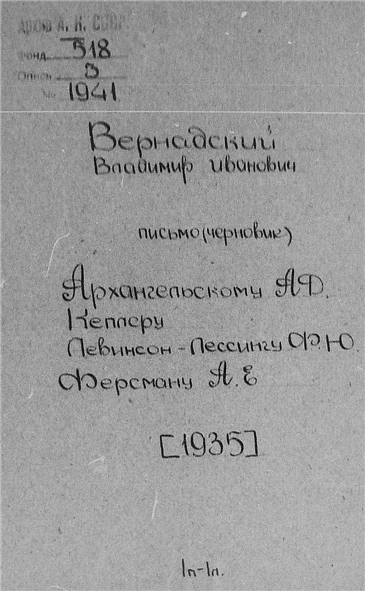 Архив А. Н. СССР
Фонд 518
Опись 3
№ 1941
Вернадский
Владимир Иванович
письмо (черновик)
Архангельскому А.Д.
Кеплеру
Левинсон-Лессингу Ф.Ю.
Ферсману А.Е
[1935]
1л-1л.